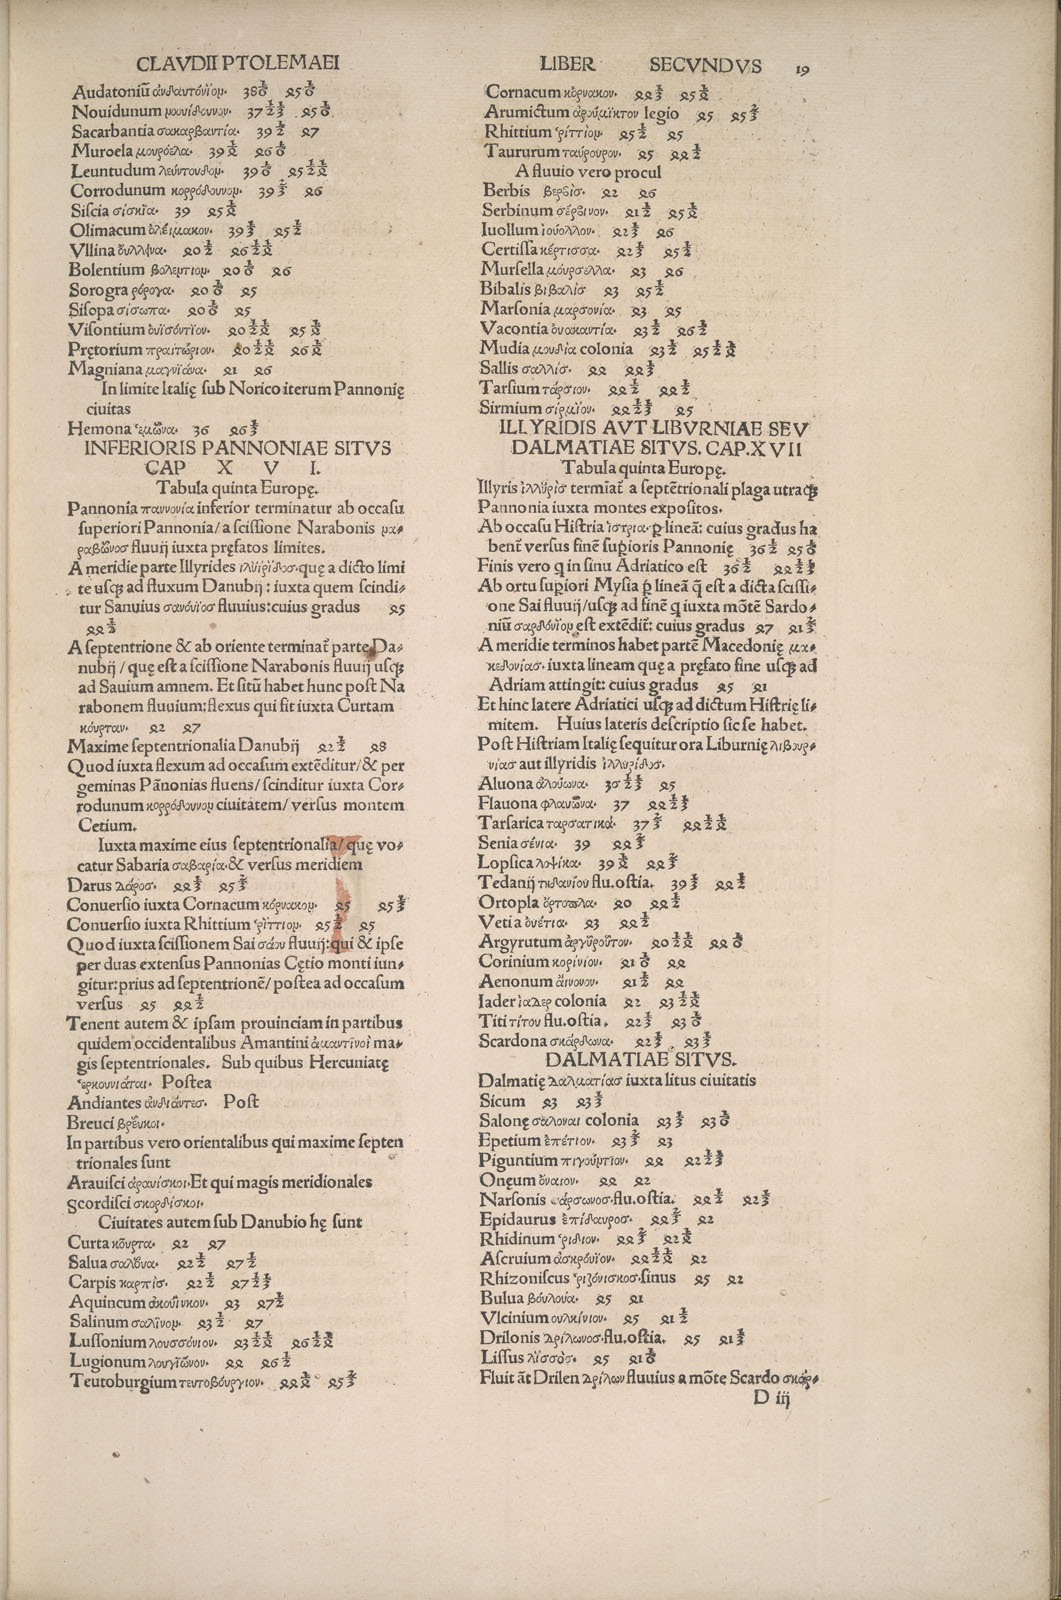 CLAVDII PTOLEMAEI
Audatoniū ἀνδαυτόνϊομ. 38
Nouidunum μουνίδουνομ. 37
Sacarbantia σακαρβαντία. 39 ½ 27
Muroela μουρόελα. 39
Leuntudum λεύντουδομ. 39
Corrodunum κορρόδουνομ. 39 26
Siscia σισκῖα. 39
Olimacum ὀλείμακον. 39
Vllina ὄυλλῆνα. 20 ½
Bolentium βολεμτιομ. 20 26
Sorogra ρόρογα. 20 25
Sisopa σίσωπα. 20 25
Visontium ὀυϊσόντϊον. 20
Prętorium πραιτώριον. 20
Magniana μαγνϊάνα. 21 26
In limite Italię sub Norico iterum Pannonię
ciuitas
Hemona ἑμῶνα. 36
INFERIORIS PANNONIAE SITVS
CAP X V I.
Tabula quinta Europę.
Pannonia παννονία inferior terminatur ab occasu
superiori Pannonia/a scissione Narabonis μα⸗
ραβῶνοσ fluuij iuxta pręfatos limites.
A meridie parte Illyrides ἰλυϊρῖδοσ. quę a dicto limi
te usq̃ ad fluxum Danubij: iuxta quem scindi⸗
tur Sauuius σαυόνϊοσ fluuius: cuius gradus 25
22 ½
A septentrione & ab oriente terminat̃ parte Da⸗
nubij/ quę est a scissione Narabonis fluuij usq̃
ad Sauium amnem. Et sitū habet hunc post Na
rabonem fluuium: flexus qui fit iuxta Curtam
κόυρταν. 22 27
Maxime septentrionalia Danubij 22 ½ 28
Quod iuxta flexum ad occasum extēditur/& per
geminas Pānonias fluens/scinditur iuxta Cor⸗
rodunum κορρόδουνομ ciuitatem/ versus montem
Cetium.
Iuxta maxime eius septentrionalia/ quę vo⸗
catur Sabaria σαβαρία. & versus meridiem
Darus δάροσ. 22 25
Conuersio iuxta Cornacum κόρνακομ. 25 25
Conuersio iuxta Rhittium ῥίττιομ. 25 25
Quod iuxta scissionem Sai σάου fluuij: qui & ipse
per duas extensus Pannonias Cętio monti iun⸗
gitur: prius ad septentrionē/ postea ad occasum
versus 25 22 ½
Tenent autem & ipsam prouinciam in partibus
quidem occidentalibus Amantini ἀμαντῖνοὶ ma⸗
gis septentrionales. Sub quibus Hercuniatę
ἑρκουνιάται. Postea
Andiantes ἀνδιάντεσ. Post
Breuci βρεῦκοι.
In partibus vero orientalibus qui maxime septen
trionales sunt
Arauisci ἀραυίσκοι. Et qui magis meridionales
scordisci σκορδίσκοι.
Ciuitates autem sub Danubio hę sunt
Curta κοῦρτα. 22 27
Salua σαλόυα. 22 ½ 27 ½
Carpis καρπὶσ. 22 ½ 27
Aquincum ἀκούϊνκον. 23 27 ½
Salinum σαλῖνομ. 23 ½ 27
Lussonium λουσσόνιον. 23
Lugionum λουγιῶνον. 22 26 ½
Teutoburgium τευτοβόυργιον. 22 25
LIBER SECVNDVS 19
Cornacum κόρνακον. 22
Arumictum ἀρούμϊκτον legio 25
Rhittium ῥίττιομ. 25 ½ 25
Taururum ταύρουρον. 25 22 ½
A fluuio vero procul
Berbis βερβὶσ. 22 26
Serbinum σέρβινον. 21 ½ 25
Iuollum ἰουόλλον. 22 26
Certissa κέρτισσα. 22 25
Mursella μόυρσελλα. 23 26
Bibalis βιβαλὶσ 23 25 ½
Marsonia μαρσονία. 23 25
Vacontia ὀυακαντία. 23 ½ 26 ½
Mudia μουδία colonia 23 ½
Sallis σαλλίσ. 22 22
Tarsium τάρσιον. 22 ½ 22 ½
Sirmium σίρμϊον. 22 25
ILLYRIDIS AVT LIBVRNIAE SEV
DALMATIAE SITVS. CAP. XVII
Tabula quinta Europę.
Illyris ἰλλῦρὶσ termīat̃ a septētrionali plaga utraq̃
Pannonia iuxta montes expositos.
Ab occasu Histria ἰστρια. p lineā: cuius gradus ha
bent̃ versus finē supioris Pannonię 36 ½ 25
Finis vero q̄ in sinu Adriatico est 36 ½ 22
Ab ortu supiori Mysia p lineā q̄ est a dicta scissi⸗
one Sai fluuij/usq̃ ad finē q̄ iuxta mōtē Sardo⸗
niū σαρδόνϊομ est extēdit̃: cuius gradus 27 21
A meridie terminos habet partē Macedonię μα⸗
κεδονίασ. iuxta lineam quę a pręfato fine usq̃ ad
Adriam attingit: cuius gradus 25 21
Et hinc latere Adriatici usq̃ ad dictum Histrię li⸗
mitem. Huius lateris descriptio sic se habet.
Post Histriam Italię sequitur ora Liburnię λιβουρ⸗
νίασ aut illyridis ἰλλυρίδοσ.
Aluona ἀλούωνα. 25
Flauona φλαυῶνα. 37
Tarsarica ταρσατικά. 37
Senia σένια. 39 22
Lopsica λοψίκα. 39 22
Tedanij τηδανίου flu. ostia. 39 22 ½
Ortopla ὀρτοπλα. 20 22 ½
Vetia ὀυέτια. 23 22 ½
Argyrutum ἀργῦροῦτον. 20 22
Corinium κορίνιον. 21 22
Aenonum ἄινονον. 21 ½ 22
Iader ἰαδερ colonia 22 23
Titi τίτου flu. ostia. 22 23
Scardona σκάρδωνα. 22 23
DALMATIAE SITVS.
Dalmatię δαλματίασ iuxta litus ciuitatis
Sicum 23 23
Salonę σάλοναι colonia 23 23
Epetium ἐπέτιον. 23 23
Piguntium πιγούμτιον. 22 22
Onęum ὄναιον. 22 22
Narsonis νάρσωνοσ. flu. ostia. 22 ½ 22
Epidaurus ἐπίδαυροσ. 22 22
Rhidinum ῥίδιον. 22 22
Ascruium ἀσκρόυϊον. 22 22
Rhizoniscus ῥιζόνισκοσ. sinus 25 22
Bulua βόυλουα. 25 21
Vlcinium ουλκίνιον. 25 21 ½
Drilonis δρίλωνοσ. flu. ostia. 25 21
Lissus λῖσσὸσ. 25 21
Fluit āt Drilen δρίλων fluuius a mōte Scardo σκάρ⸗
D iij